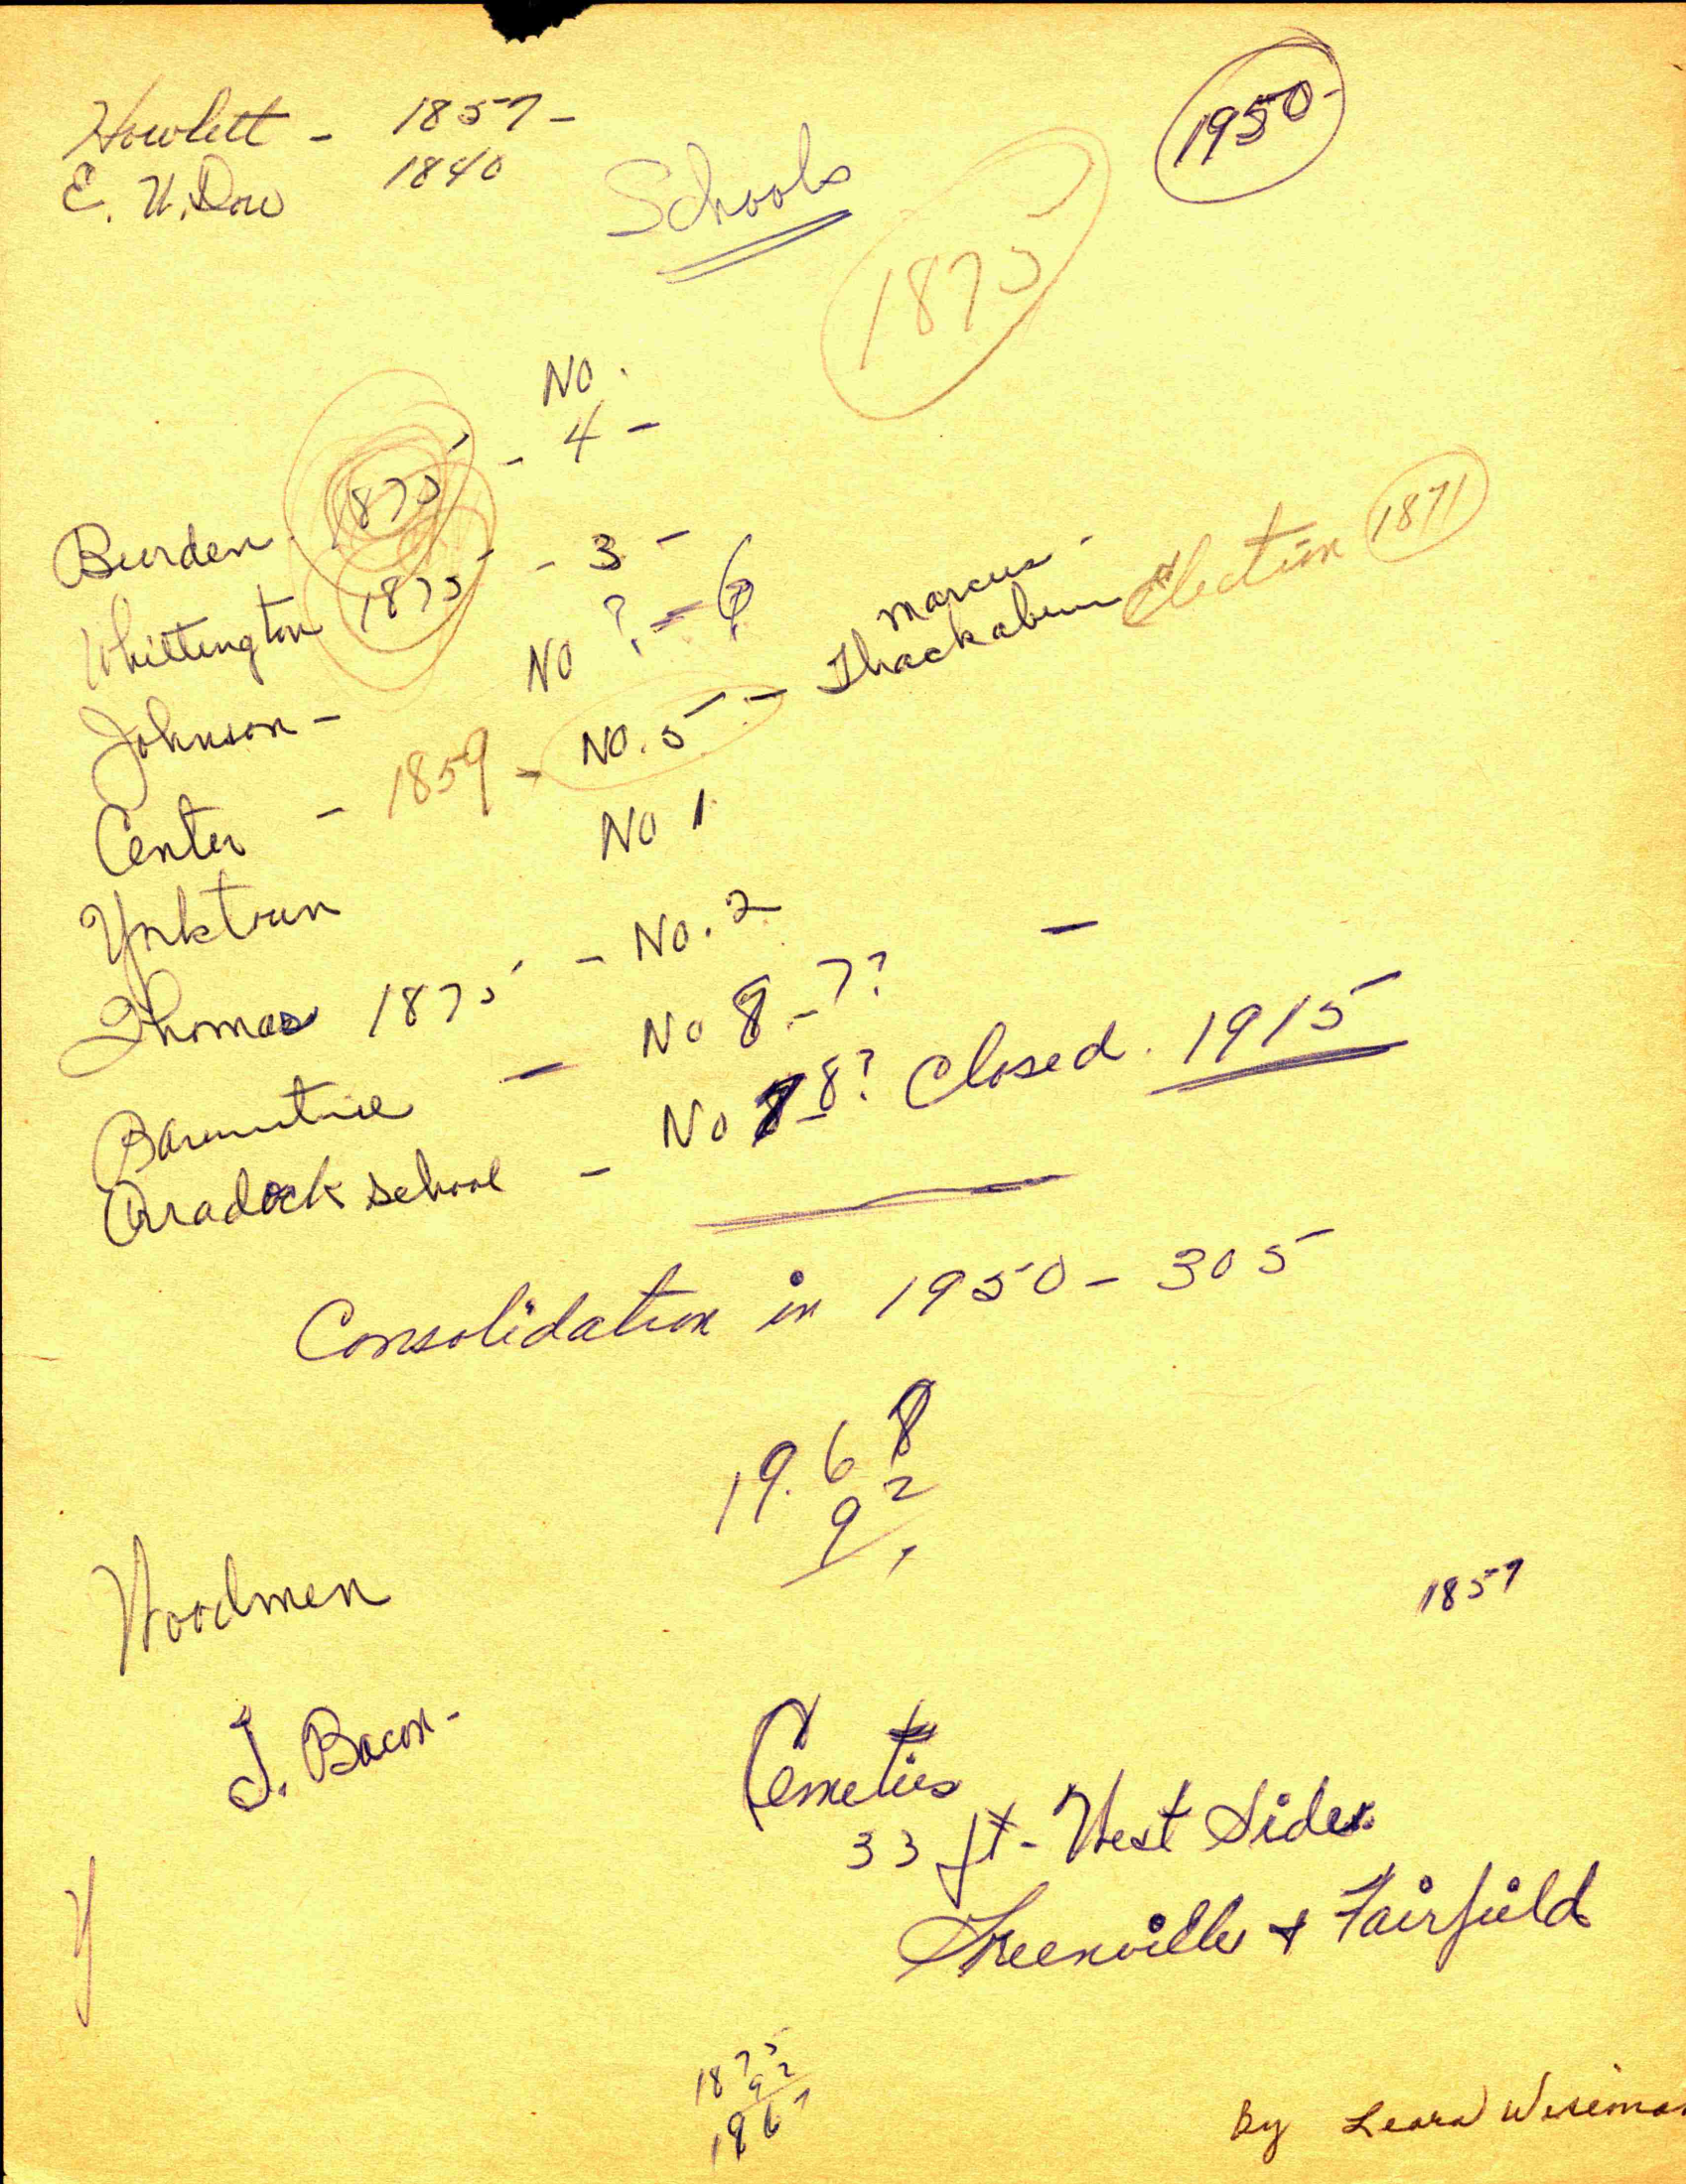 Howlett - 1857 -
E. W. Dow 1840
1950-
Schools
1875
No.
Burden. 1875 - 4 -
Whittington 1875 - 3 -
Johnson - No ? - 6
Center - 1859 - No. 5 - Marcus - Thackabury Election 1871
Yorktown No 1
Thomas 1875 - No. 2
- No 8 - 7?
Craddock school - No 7 - 8? Closed. 1915
Consolidation in 1950 - 305
19.68
92
Woodmen
1857
J. Bacon -
33 ft - West Side
Greenville + Fairfield
1875
92
1967
By Leara Wiseman